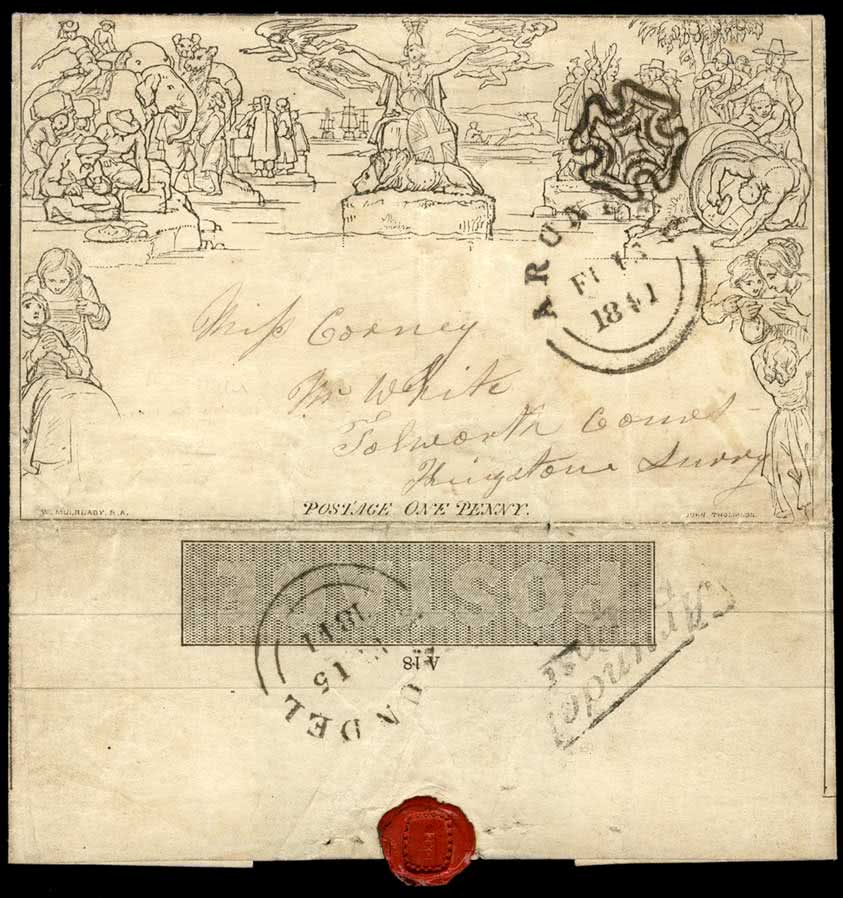 ARUN
FE 15
1841
Miss Corney
Mr White
Tolworth Comn
Kingstone Surry
W. MULREADY. R.A.
POSTAGE ONE PENNY.
JOHN THOMPSON.
POSTAGE
A 18
UNDEL
15
1841
Arundel
Penny Post